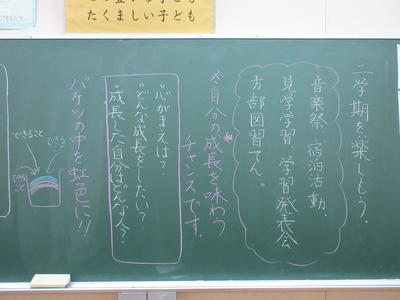 たくましい子ども
二学期を楽しもう。
音楽祭、宿泊活動、
見学学習、学習発表会
方部図習てん。
※自分の成長を味わう
チャンスです。
心がまえは？
どんな成長をしたい？
成長した自分はどんな人？
バケツの中を虹色に!!
できること
できる
できること